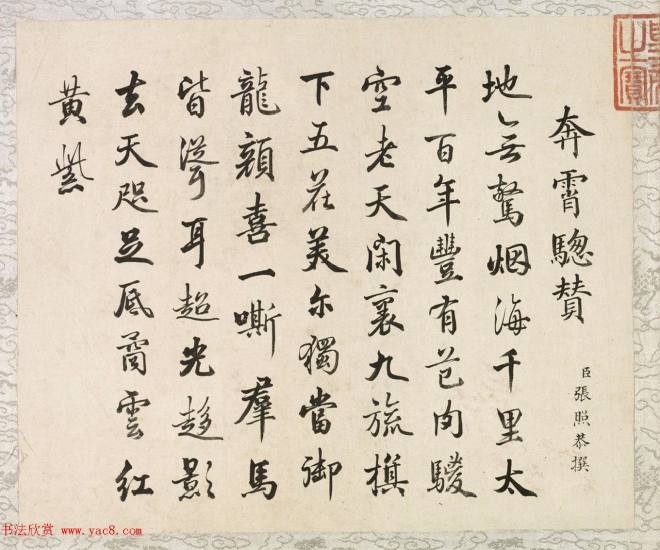 奔霄驄贊
臣張照恭撰
地無驚烟海千里太
平百年豐有芑肉騣
空老天閑襄九旒旗
下五花美尔獨當御
龍顏喜一嘶羣馬
皆聳耳超光趍影
去天咫足底矞雲紅
黃紫
之寶
书法欣赏 www.yac8.com